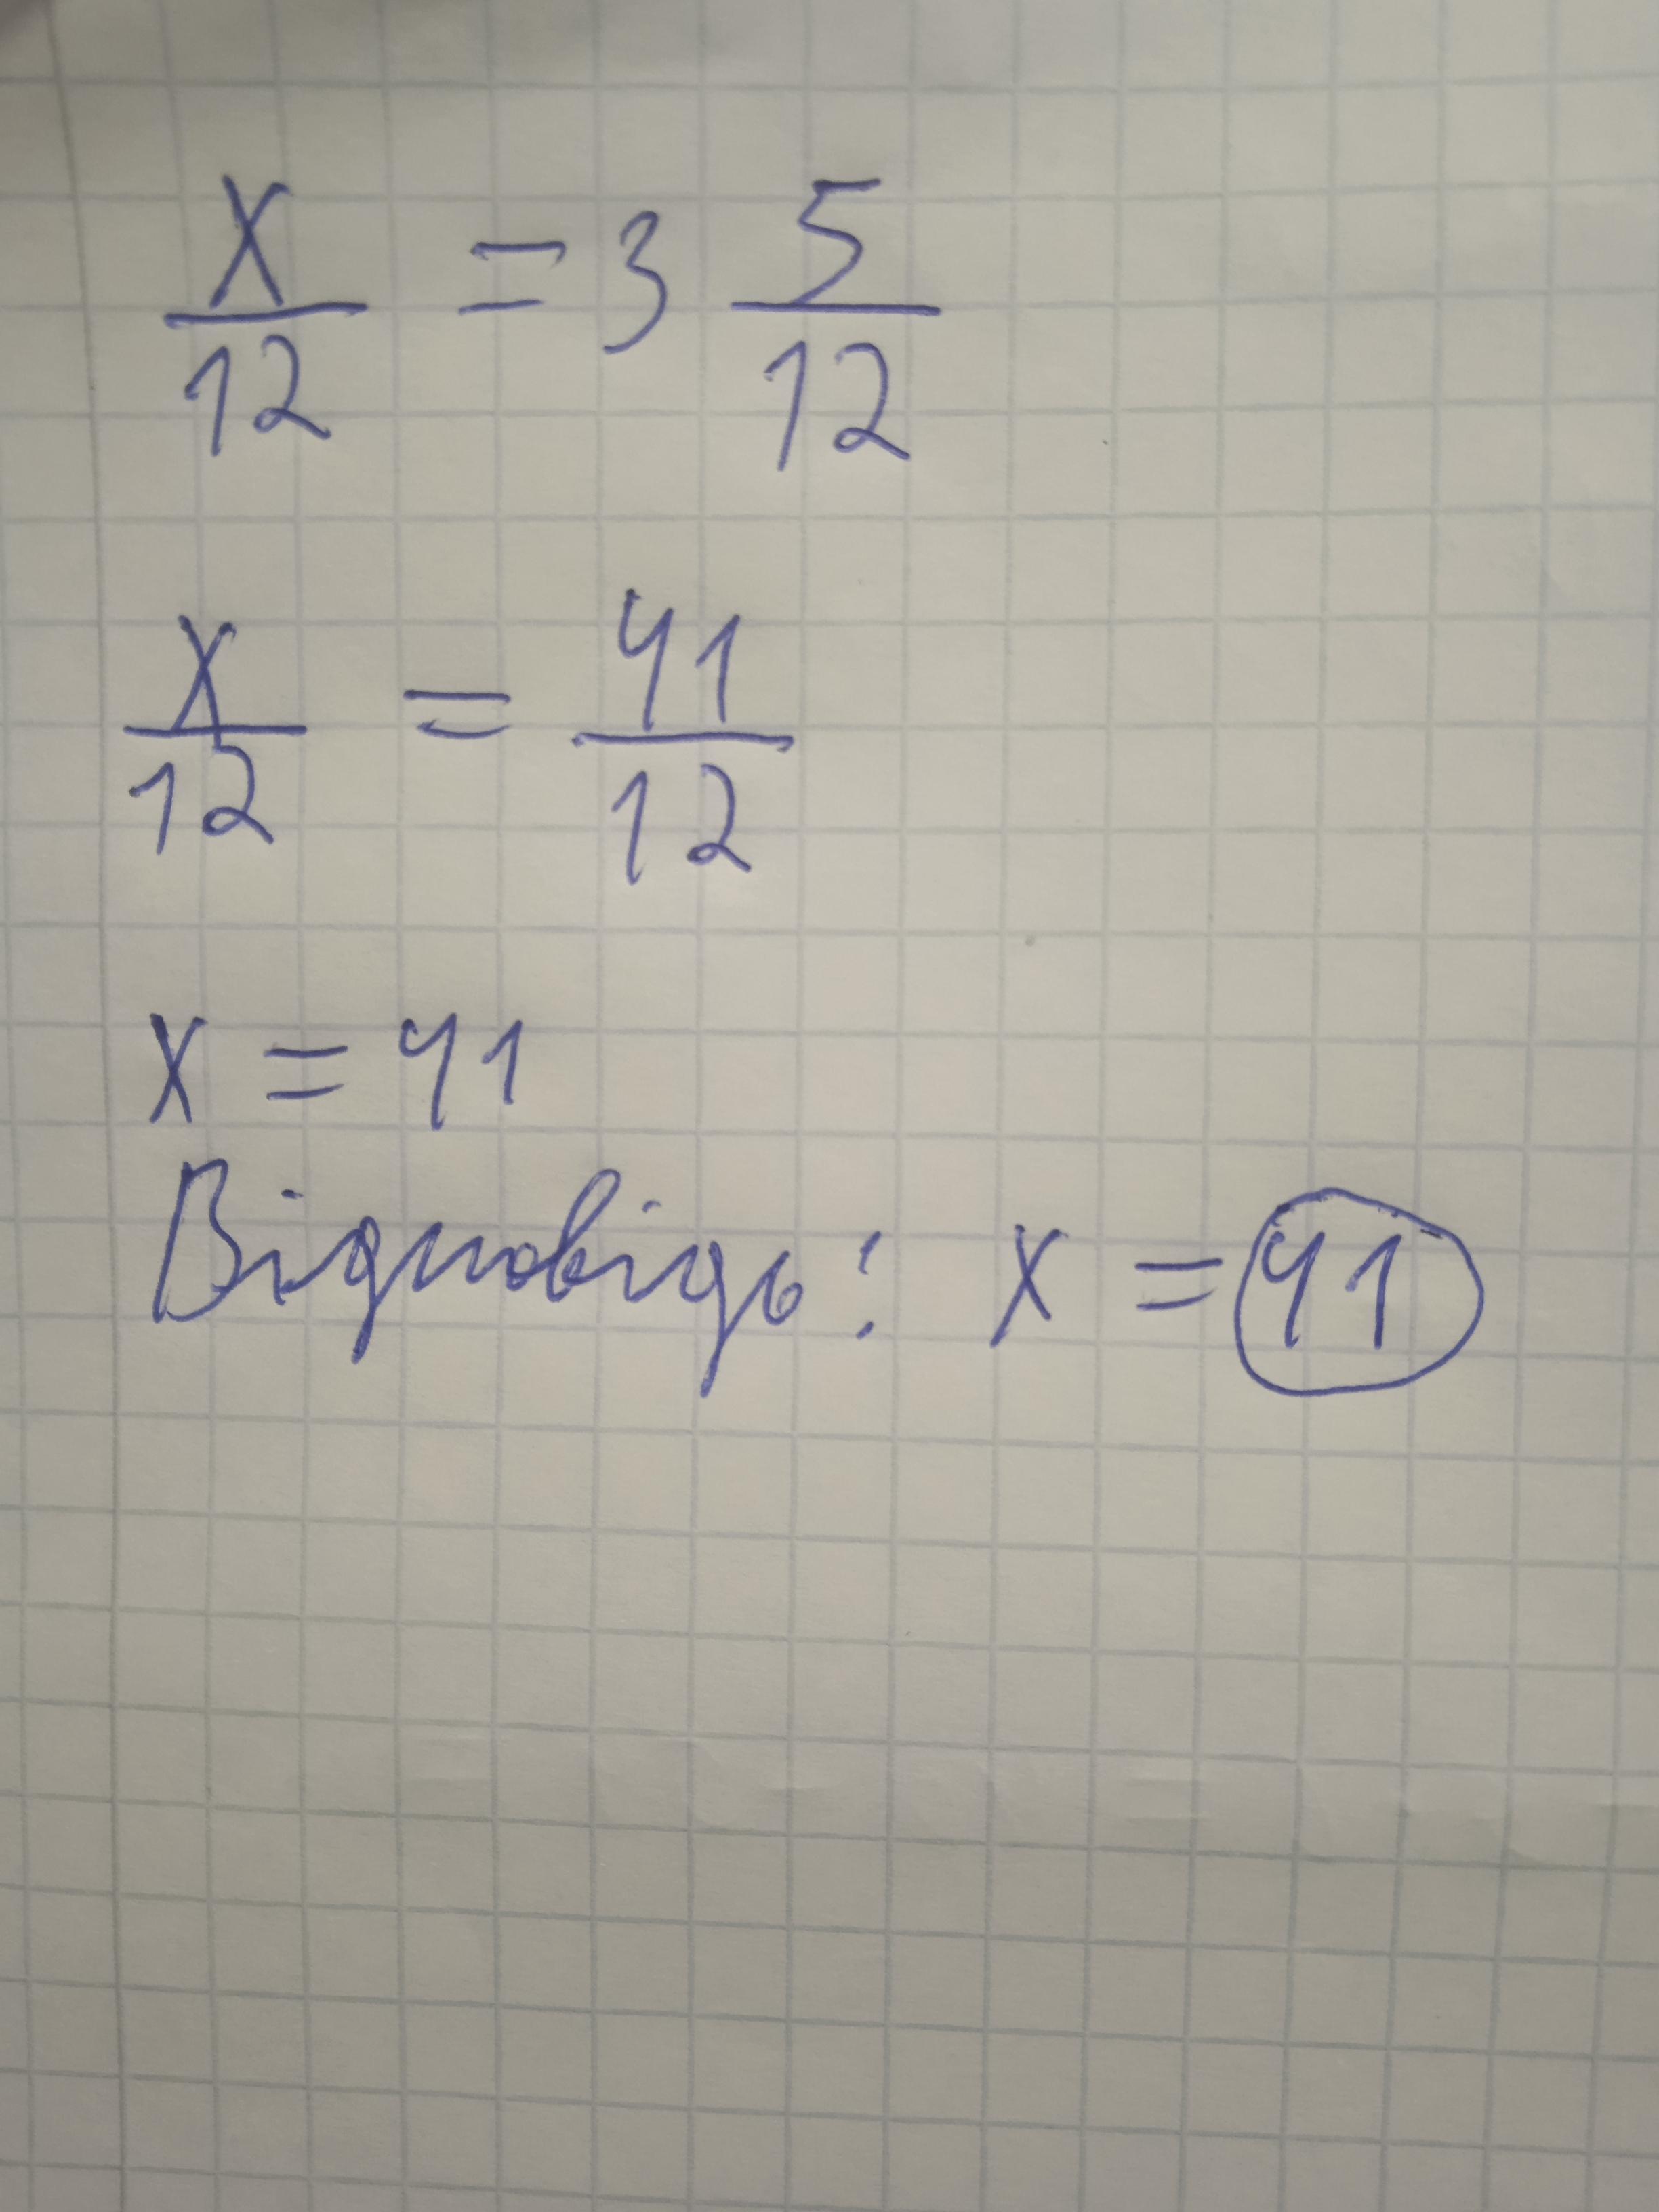 x/12 = 3 5/12
x/12 = 41/12
x = 41
Відповідь: x = 41